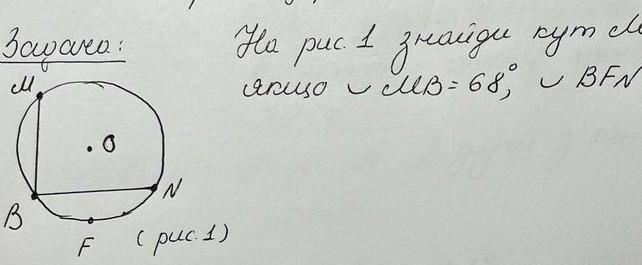 Задача:
На рис. 1 знайди кут М
якщо ◡ МВ = 68°, ◡ BFN
M
O
B
N
F
(рис. 1)